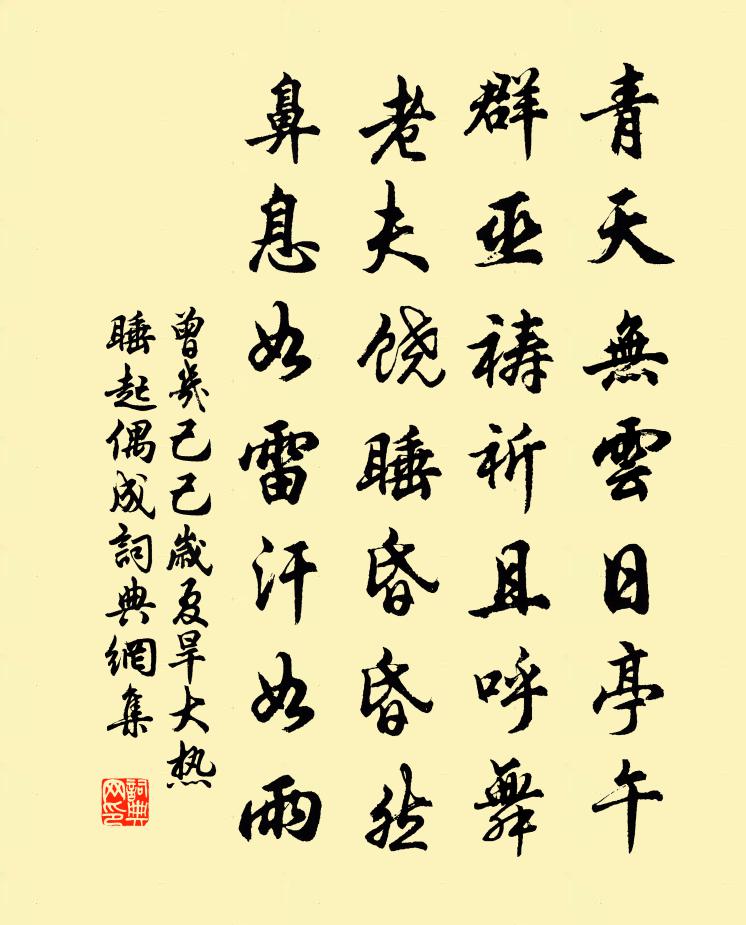 青天無雲日亭午
群巫祷祈且呼舞
老夫饶睡昏昏然
鼻息如雷汗如雨
曾幾己巳歲夏旱大热
睡起偶成詞典網集
詞典网印